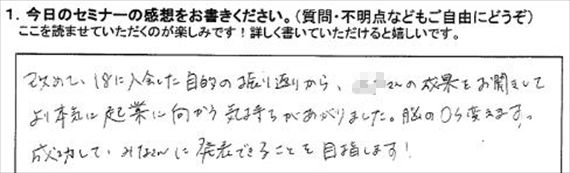 1. 今日のセミナーの感想をお書きください。(質問・不明点などもご自由にどうぞ)
ここを読ませていただくのが楽しみです!詳しく書いていただけると嬉しいです。
改めて、18に入会した目的の振り返りから、さんの成果をお聞きして
より本気に起業に向かう気持ちがあがりました。脳の口ら変えます。
成功して、みなさんに発表できることを目指します!